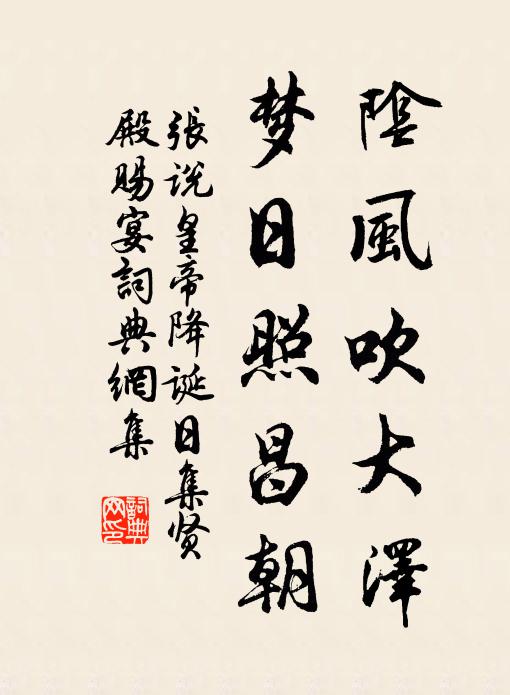 陰風吹大澤
梦日照昌朝
張说皇帝降誕日集贤
殿賜宴詞典網集
詞典
网印